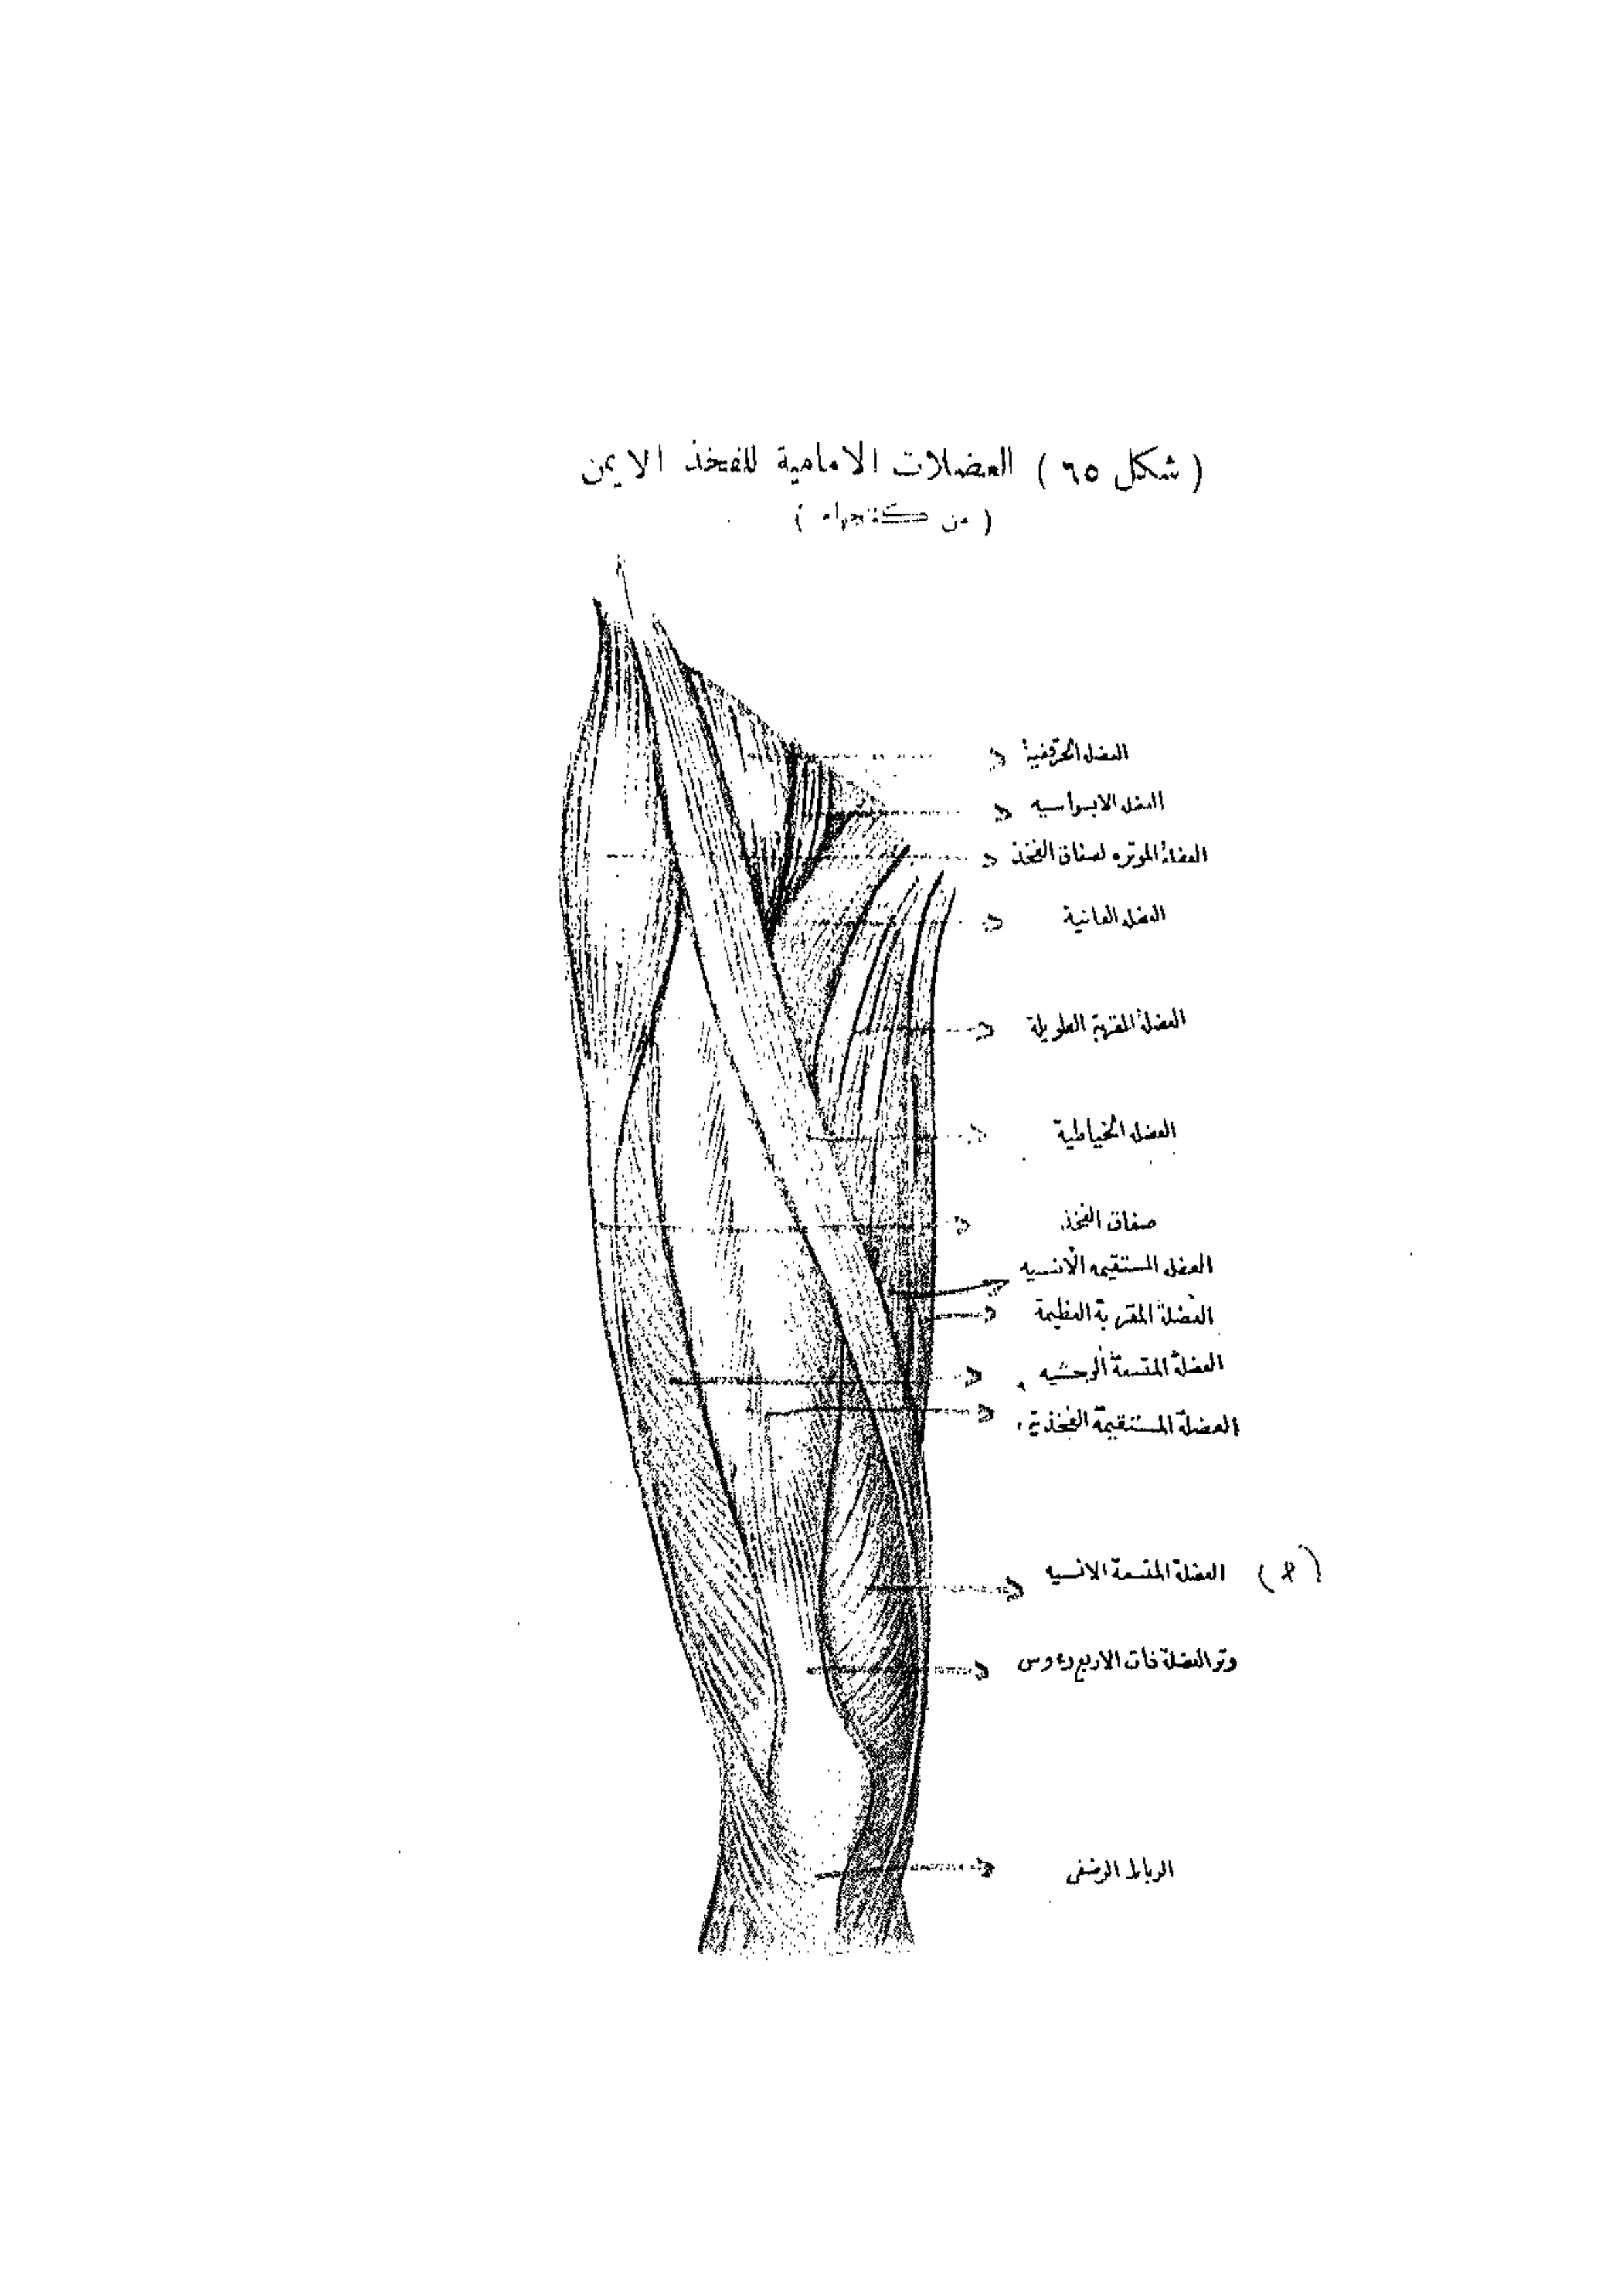 ( شكل ٦٥ ) العضلات الامامية للفخذ الايمن
( من كننجهام )
العضلة الحرقفية
العضلة الابسواسيه
العضلة الموتره لصفاق الفخذ
العضلة العانية
العضلة المقربة الطويلة
العضلة الخياطية
صفاق الفخذ
العضلة المستقيمه الأنسيه
العضلة المقربة العظيمة
العضلة المتسعة الوحشيه
العضلة المستقيمة الفخذية
العضلة المتسعة الانسيه
وتر العضلة ذات الاربع رءوس
الرباط الرضفى